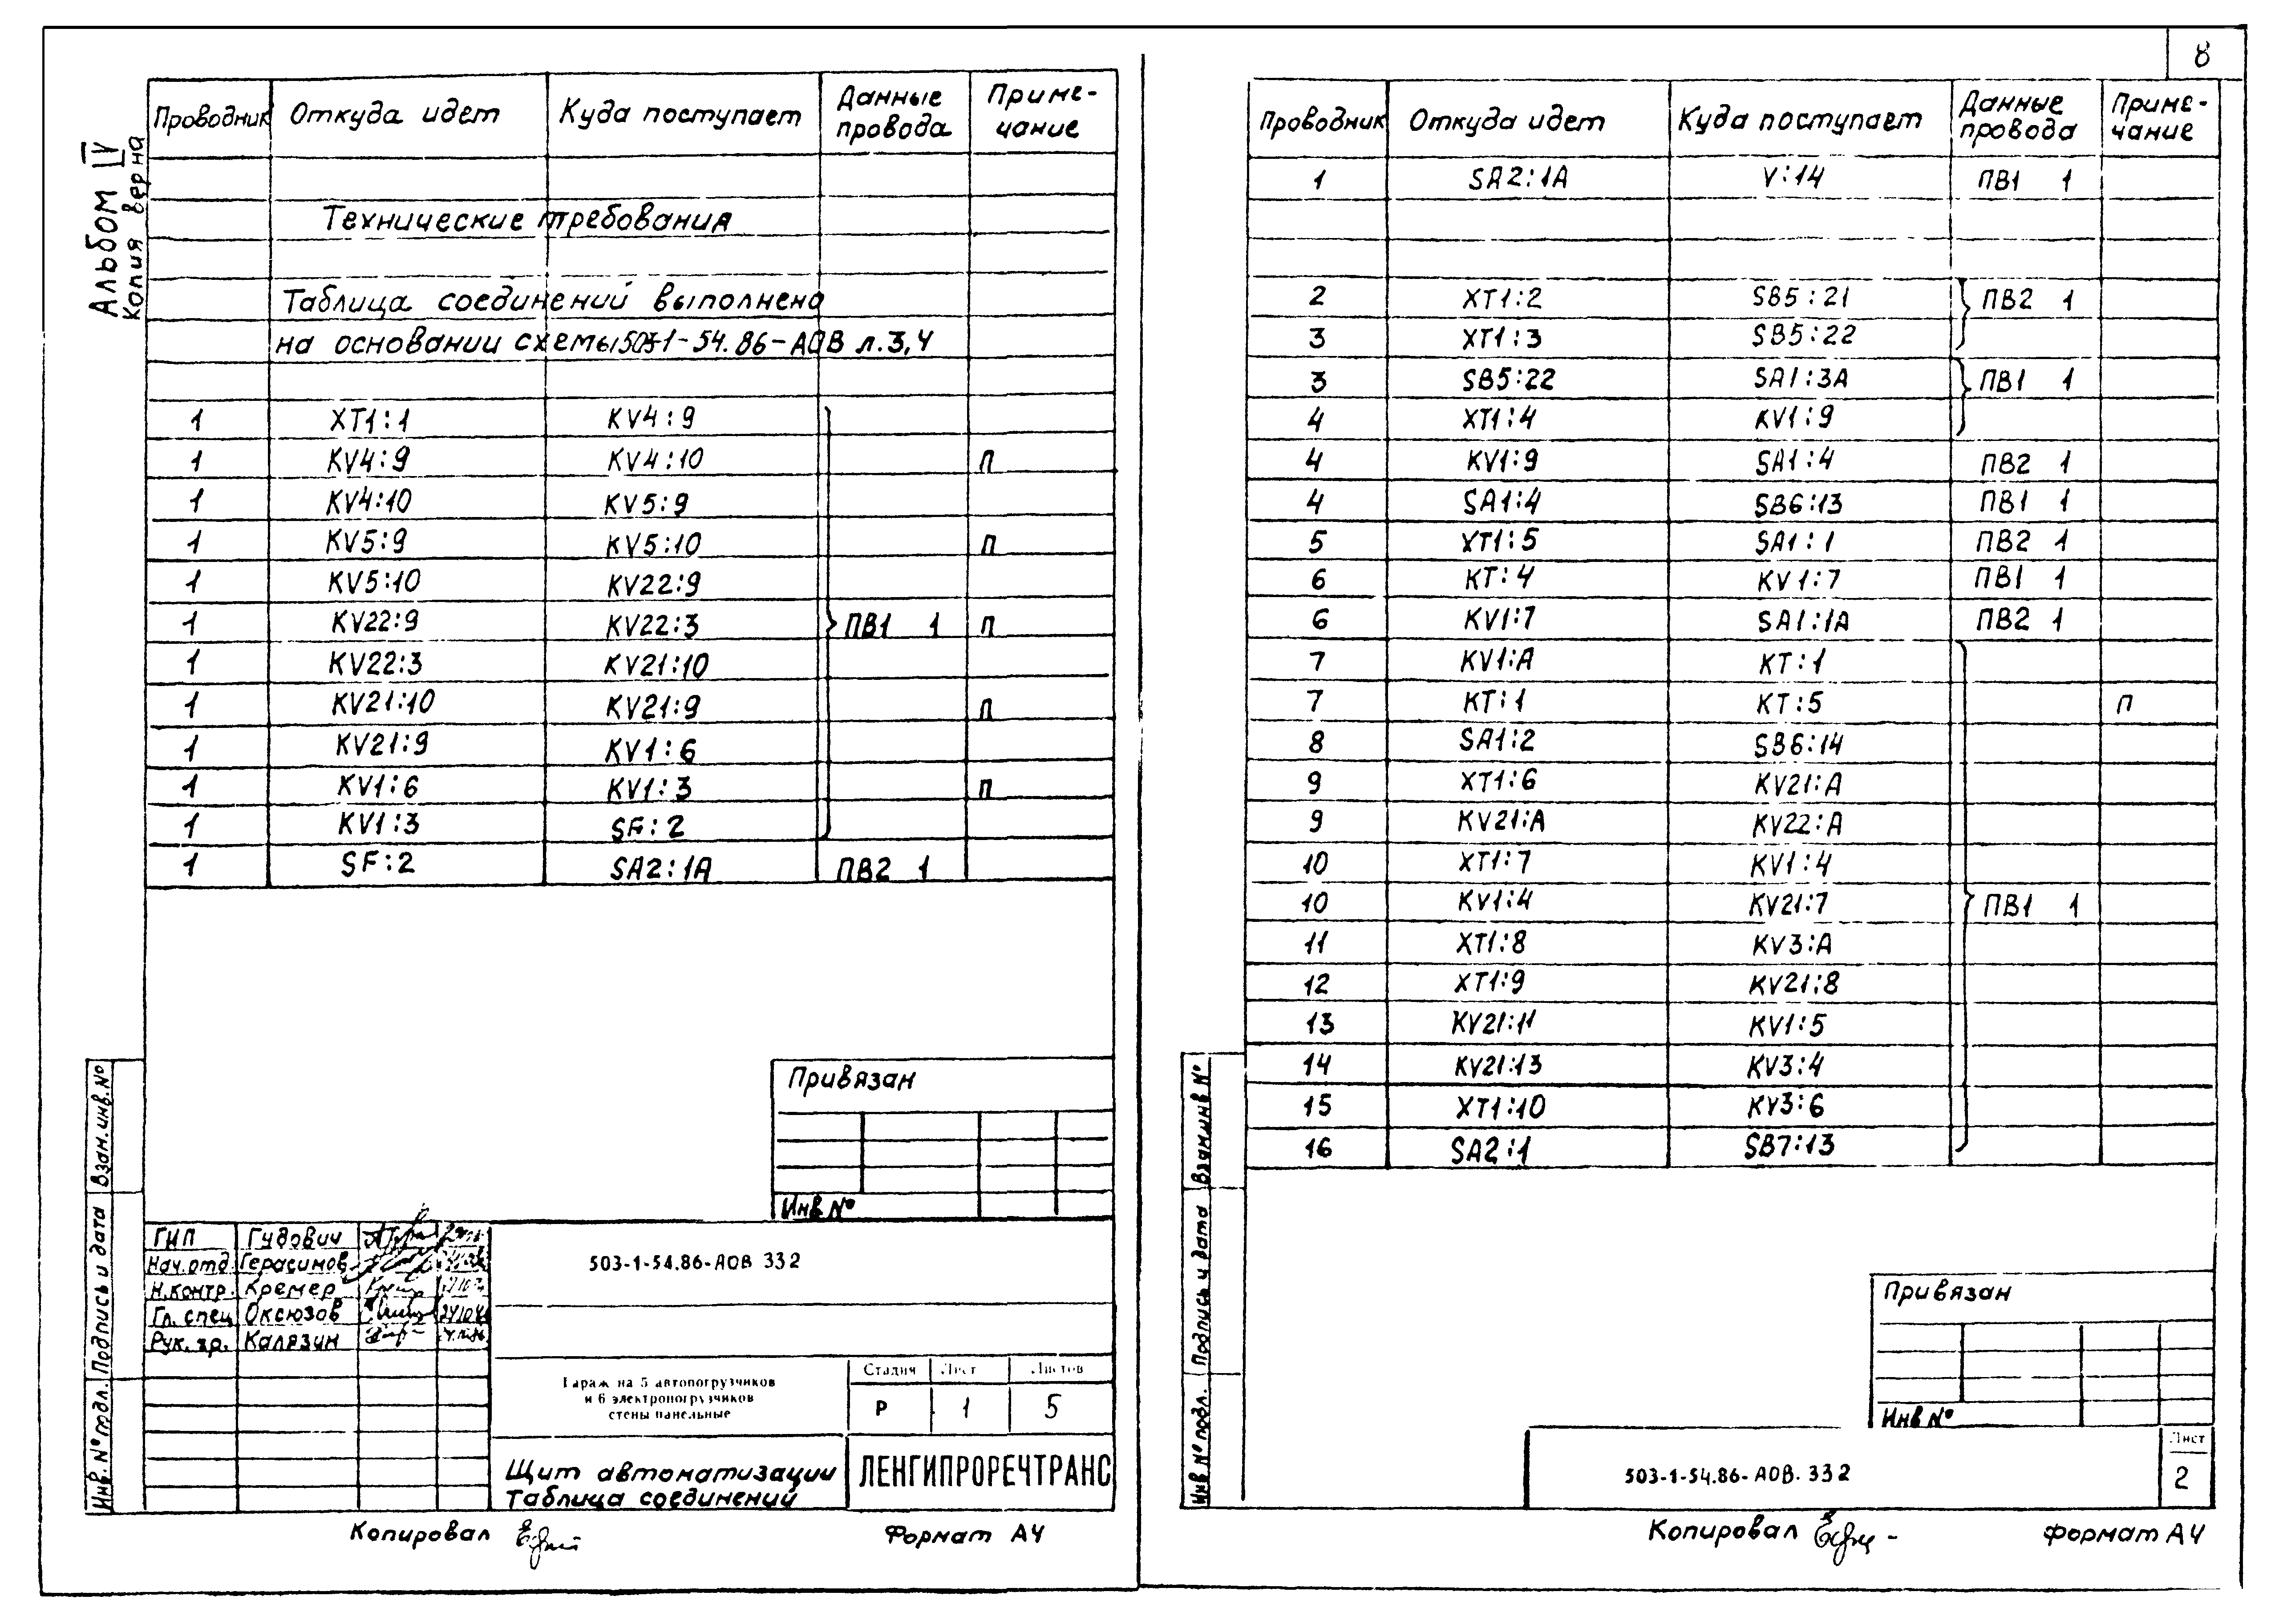 8
Альбом IV
Копия верна
Проводник Откуда идет Куда поступает Данные провода Приме-чание
Технические требования
Таблица соединений выполнена
на основании схемы 503-1-54.86-АОВ л.3,4
1 XT1:1 KV4:9
1 KV4:9 KV4:10 П
1 KV4:10 KV5:9
1 KV5:9 KV5:10 П
1 KV5:10 KV22:9
1 KV22:9 KV22:3 ПВ1 1 П
1 KV22:3 KV21:10
1 KV21:10 KV21:9 П
1 KV21:9 KV1:6
1 KV1:6 KV1:3 П
1 KV1:3 SF:2
1 SF:2 SA2:1A ПВ2 1
Привязан
Инв №
ГИП Гудович
Нач.отд. Герасимов
Н.контр. Кремер
Гл. спец Оксюзов
Рук. гр. Калязин
503-1-54.86-АОВ 332
Гараж на 5 автопогрузчиков
и 6 электропогрузчиков
стены панельные
Стадия Лист Листов
Р 1 5
Щит автоматизации
Таблица соединений
ЛЕНГИПРОРЕЧТРАНС
Инв.№ подл. Подпись и дата Взам.инв.№
Копировал
Формат А4
Проводник Откуда идет Куда поступает Данные провода Приме-чание
1 SA2:1A V:14 ПВ1 1
2 XT1:2 SB5:21 ПВ2 1
3 XT1:3 SB5:22
3 SB5:22 SA1:3A ПВ1 1
4 XT1:4 KV1:9
4 KV1:9 SA1:4 ПВ2 1
4 SA1:4 SB6:13 ПВ1 1
5 XT1:5 SA1:1 ПВ2 1
6 KT:4 KV1:7 ПВ1 1
6 KV1:7 SA1:1A ПВ2 1
7 KV1:A KT:1
7 KT:1 KT:5 П
8 SA1:2 SB6:14
9 XT1:6 KV21:A
9 KV21:A KV22:A
10 XT1:7 KV1:4
10 KV1:4 KV21:7 ПВ1 1
11 XT1:8 KV3:A
12 XT1:9 KV21:8
13 KV21:11 KV1:5
14 KV21:13 KV3:4
15 XT1:10 KV3:6
16 SA2:1 SB7:13
Привязан
Инв №
503-1-54.86-АОВ.332
Лист
2
Инв № подл. Подпись и дата Взам инв №
Копировал
Формат А4